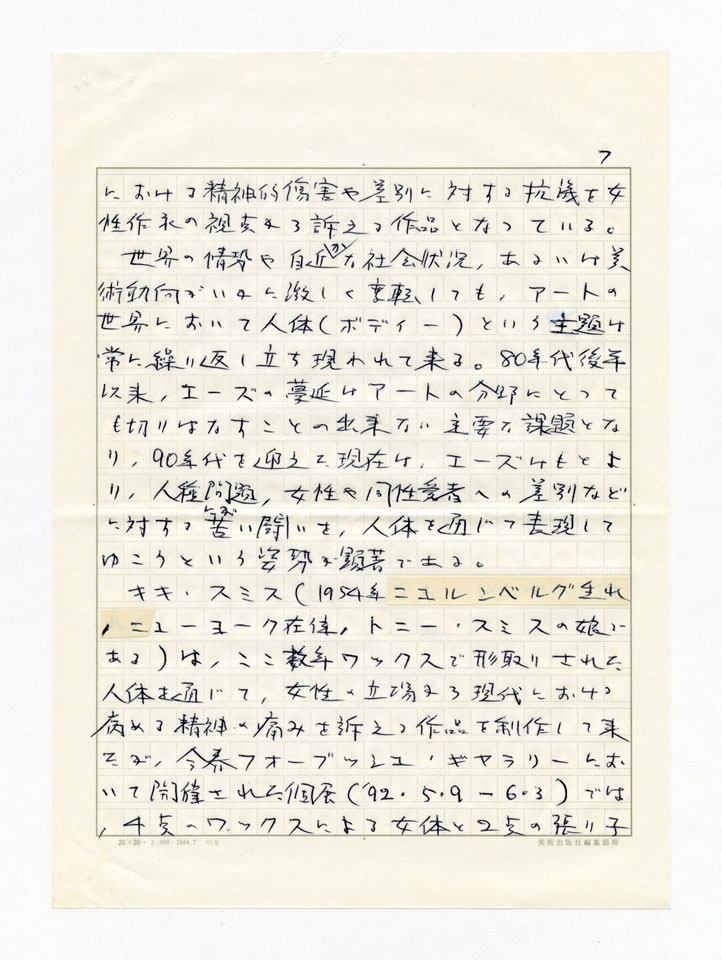 7
における精神的傷害や差別に対する抗議を女
性作家の視点から訴える作品となっている。
世界の情勢や身近な社会状況，あるいは美
術動向がいかに激しく変転しても，アートの
世界において人体（ボディー）という主題は
常に繰り返し立ち現われて来る。80年代後年
以来，エーズの蔓延はアートの分野にとって
も切りはなすことの出来ない主要な課題とな
り，90年代を迎えた現在は，エーズはもとよ
り，人種問題，女性や同性愛者への差別など
に対する苦い闘いを，人体を通じて表現して
ゆこうという姿勢が顕著である。
キキ・スミス（1954年ニュルンベルグ生れ
，ニューヨーク在住，トニー・スミスの娘で
ある）は，ここ数年ワックスで形取りされた
人体を通じて，女性の立場から現代における
病める精神の痛みを訴える作品を制作して来
たが，今春フォーブッシュ・ギャラリーにお
いて開催された個展（'92・5・9－6・3）では
，4点のワックスによる女体と2点の張り子
20×20・ 1984.7
美術出版社編集部用